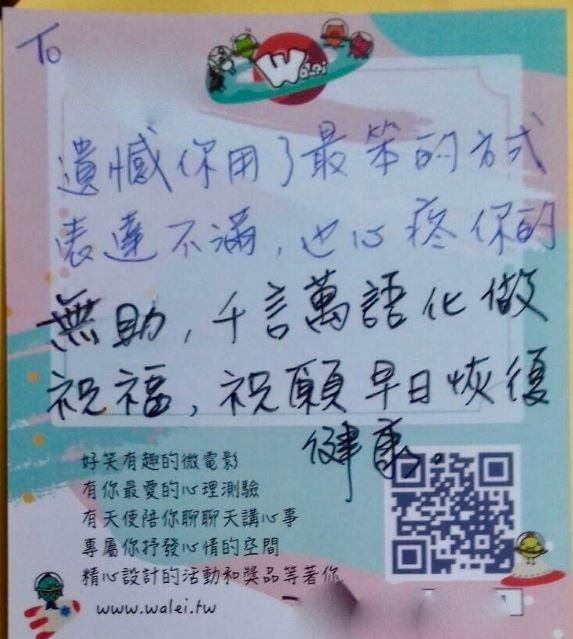 To
Walei
遺憾你用了最笨的方式
表達不滿，也心疼你的
無助，千言萬語化做
祝福，祝願早日恢復
健康。
好笑有趣的微電影
有你最愛的心理測驗
有天使陪你聊聊天講心事
專屬你抒發心情的空間
精心設計的活動和獎品等著你
www.walei.tw